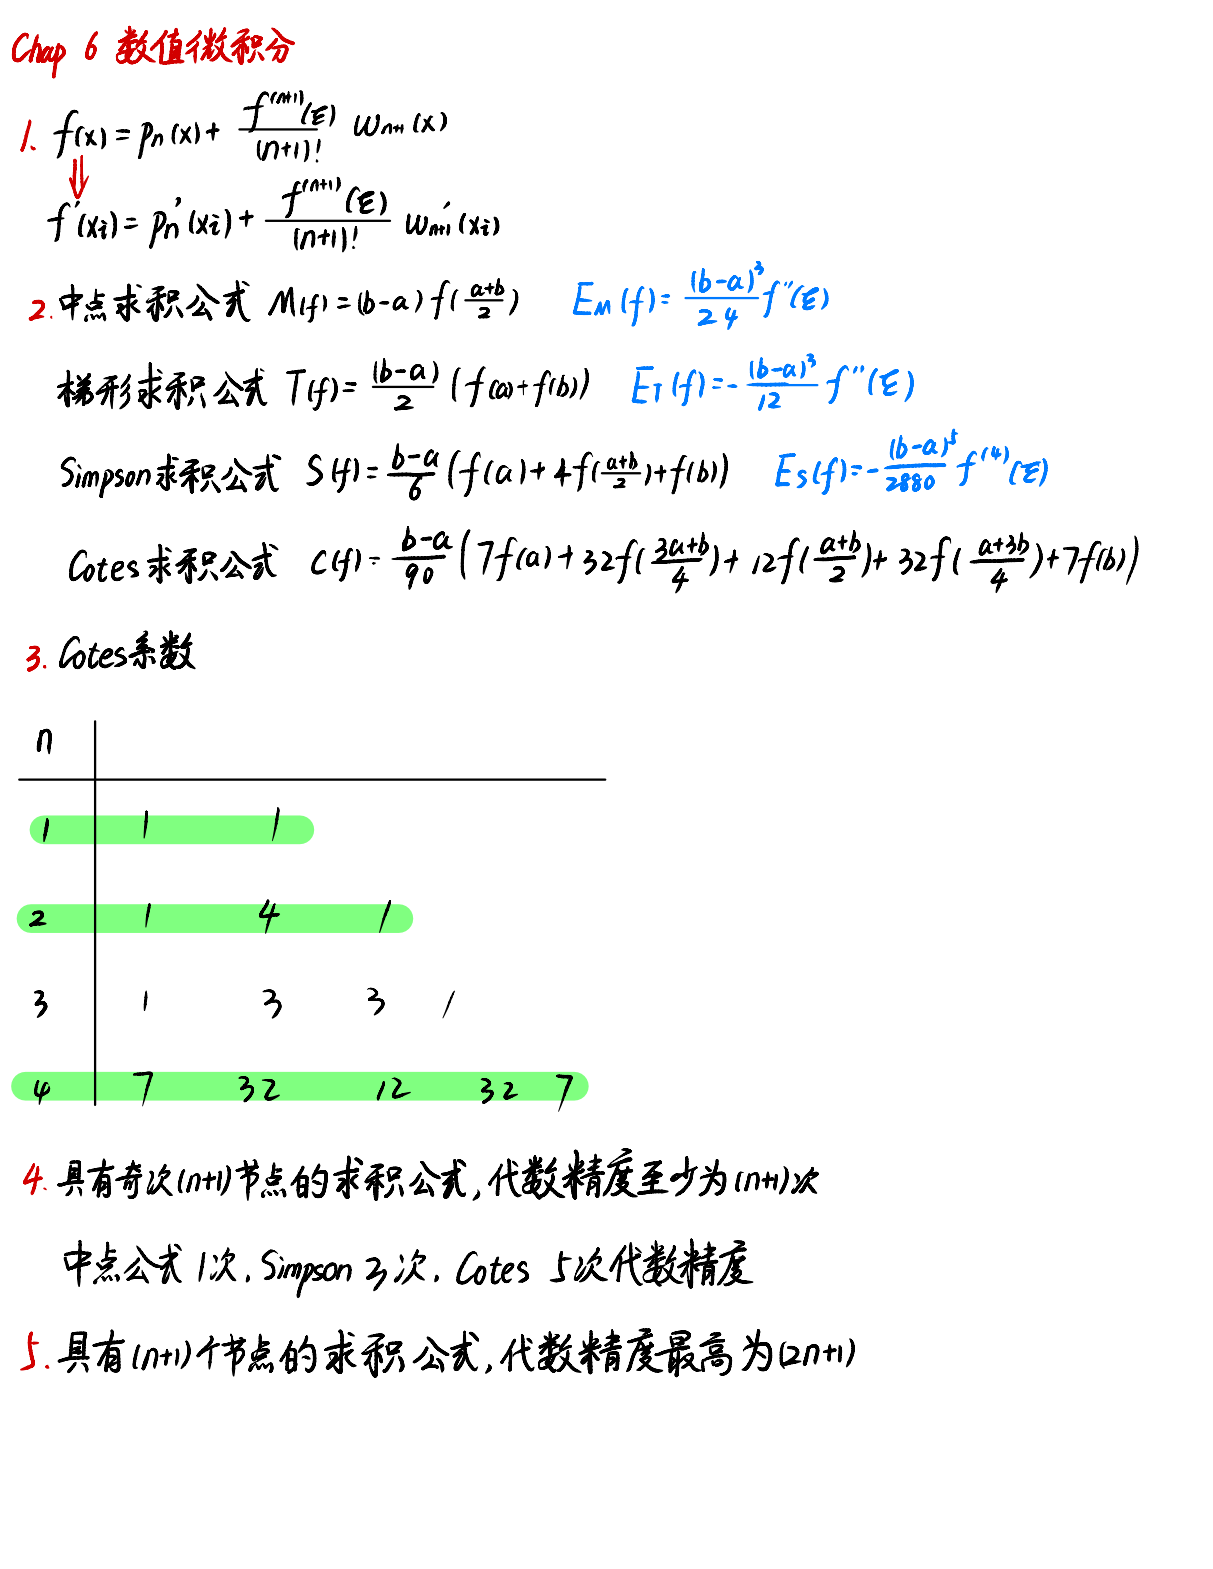 Chap 6 数值微积分
1. f(x) = pn(x) + f^(n+1)(ξ)/(n+1)! ωn+1(x)
⇓
f'(xi) = pn'(xi) + f^(n+1)(ξ)/(n+1)! ωn+1'(xi)
2. 中点求积公式 M(f) = (b-a) f((a+b)/2) EM(f) = (b-a)^3/24 f''(ξ)
梯形求积公式 T(f) = (b-a)/2 (f(a)+f(b)) ET(f) = -(b-a)^3/12 f''(ξ)
Simpson求积公式 S(f) = (b-a)/6 (f(a)+4f((a+b)/2)+f(b)) ES(f) = -(b-a)^5/2880 f^(4)(ξ)
Cotes求积公式 C(f) = (b-a)/90 (7f(a)+32f((3a+b)/4)+12f((a+b)/2)+32f((a+3b)/4)+7f(b))
3. Cotes系数
n
1 1 1
2 1 4 1
3 1 3 3 1
4 7 32 12 32 7
4. 具有奇次(n+1)节点的求积公式,代数精度至少为(n+1)次
中点公式 1次, Simpson 3次, Cotes 5次代数精度
5. 具有(n+1)个节点的求积公式,代数精度最高为(2n+1)